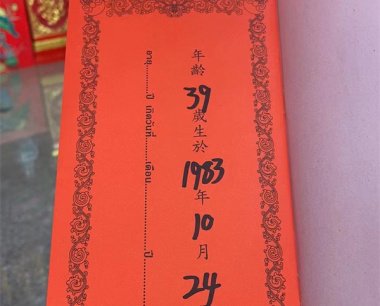 年齡39歲生於1983年10月24
อายุ..........ปี เกิดวันที่..........เดือน..............................ปี